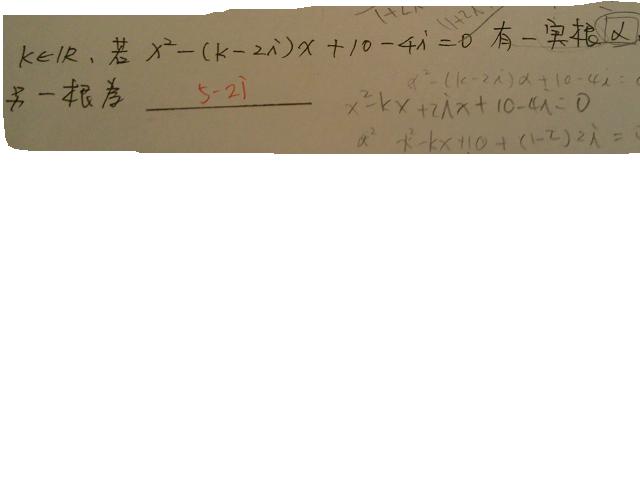 k∈R、若 x²-(k-2i)x+10-4i=0 有一實根α
另一根為 5-2i
α²-(k-2i)α+10-4i=
x²-kx+2ix+10-4i=0
-kx+10+(1-2)2i=